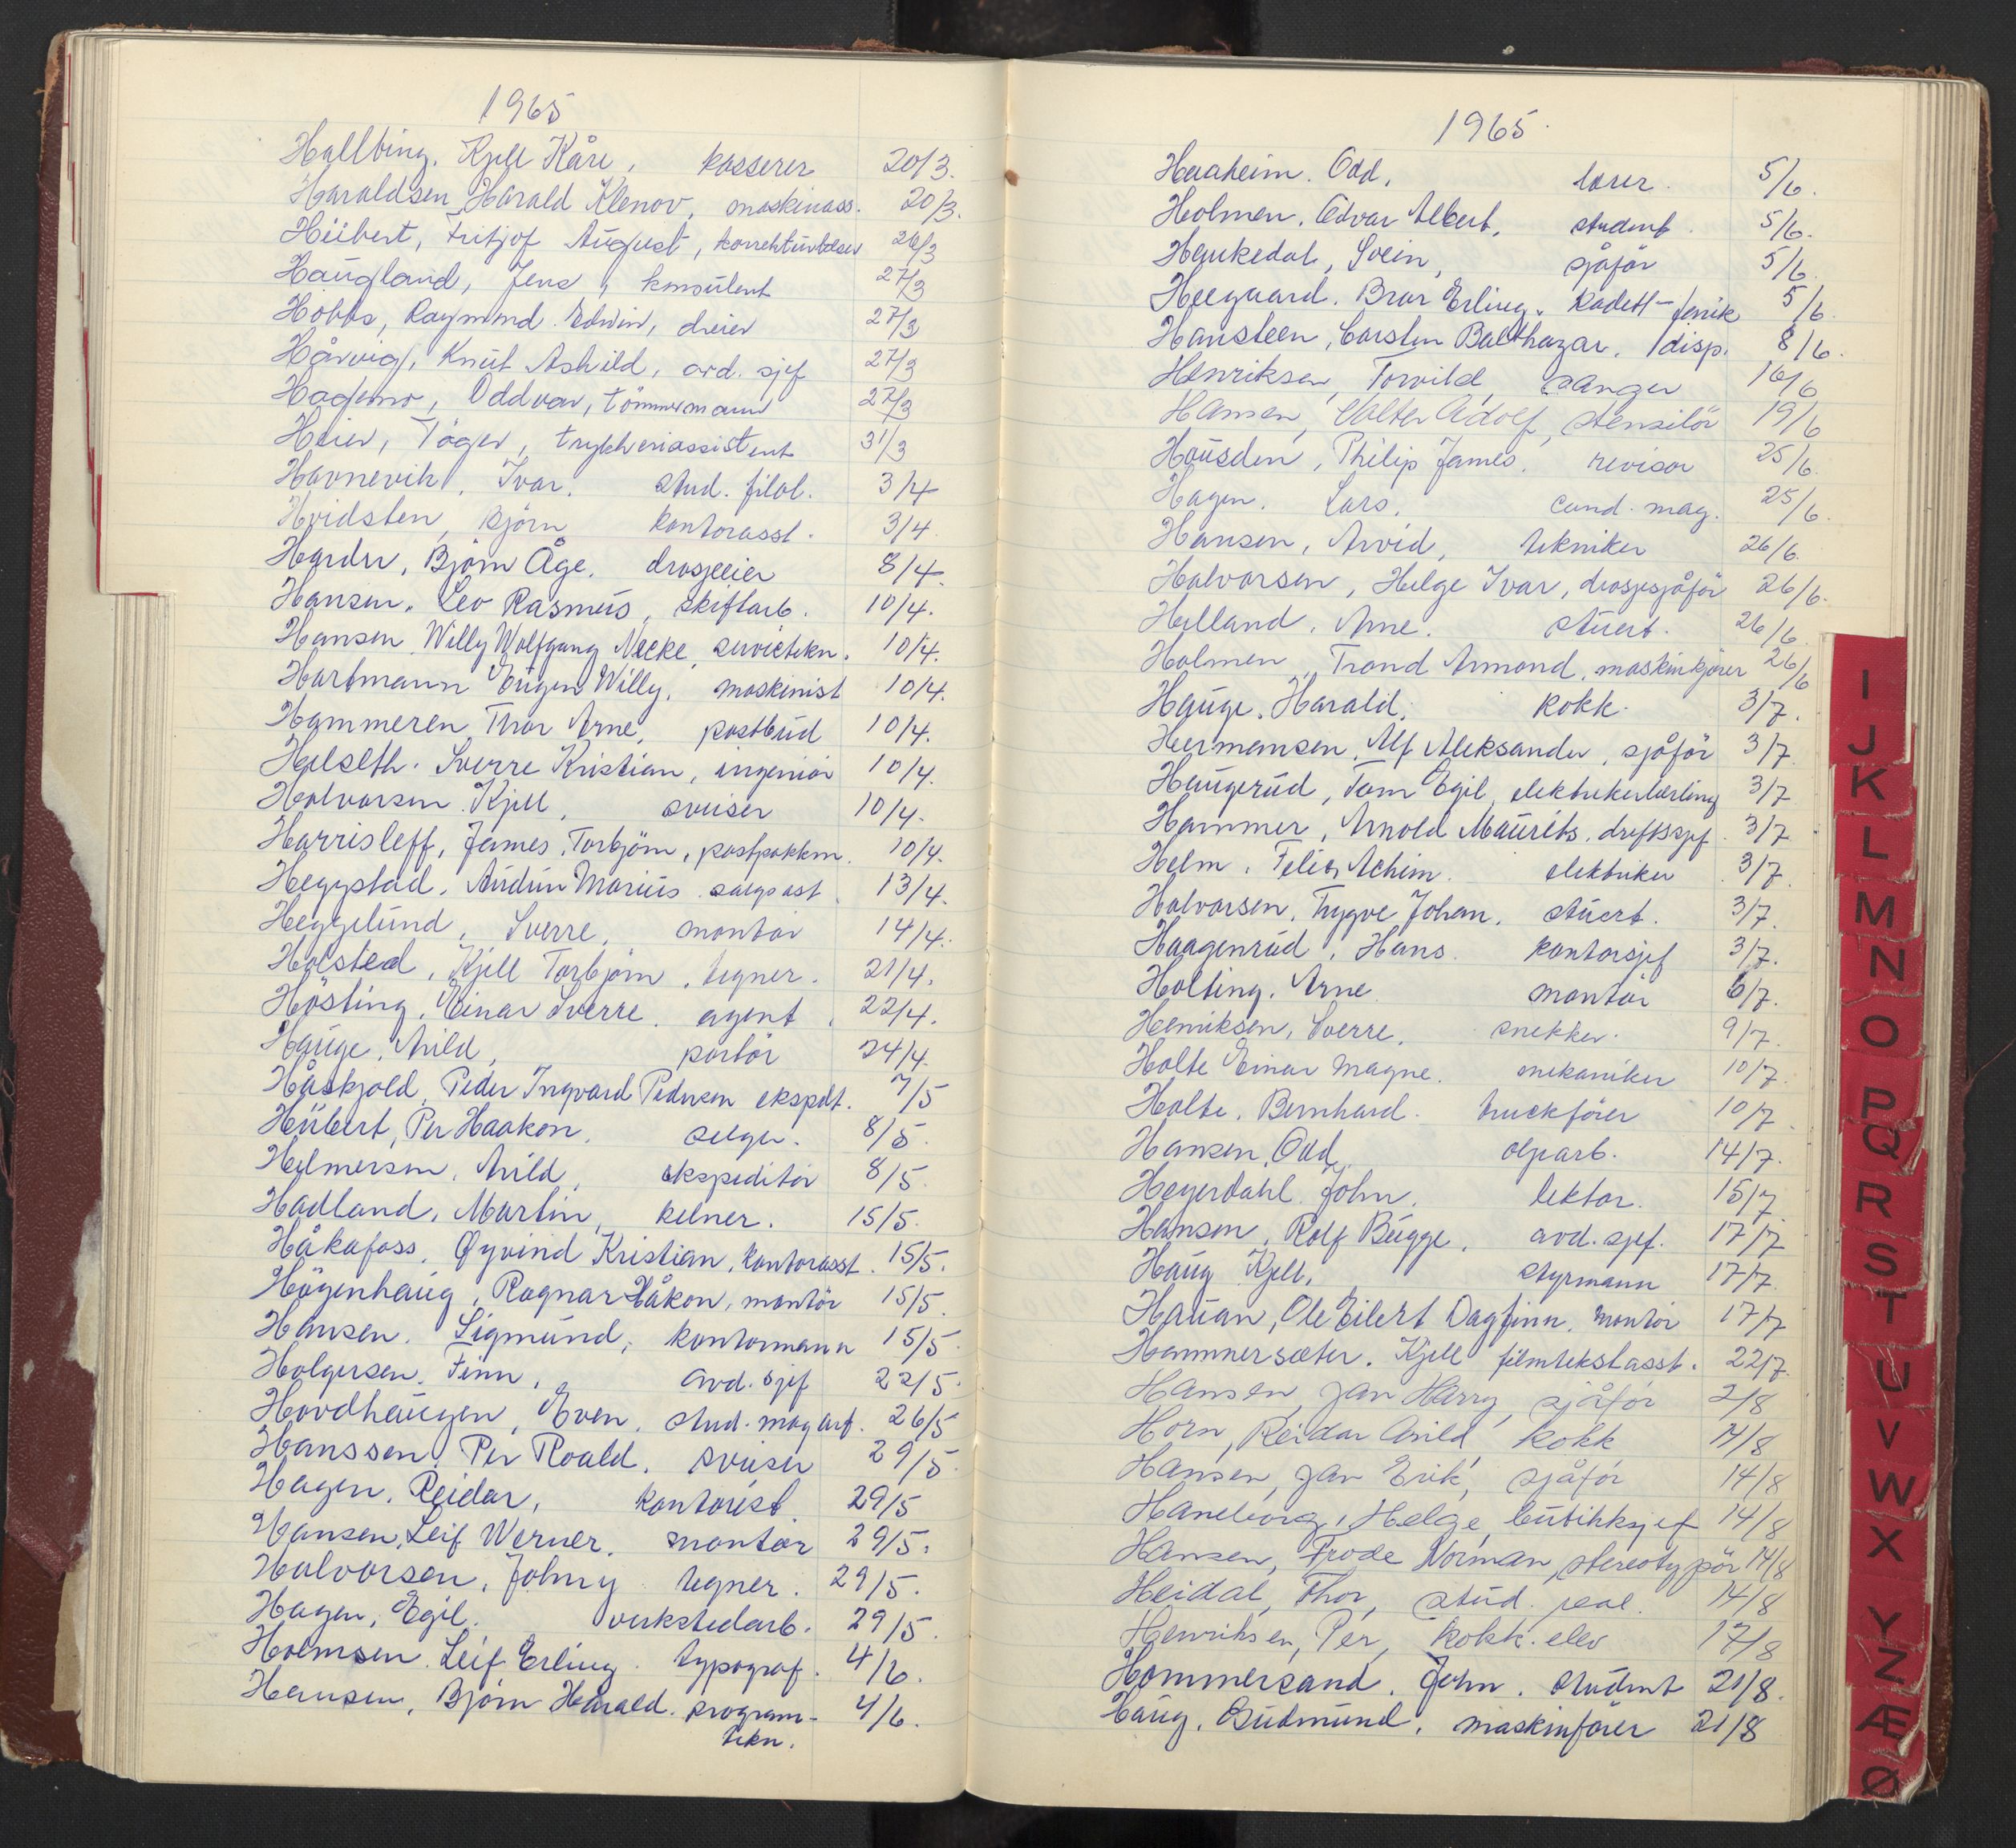 1965
Hallbing, Kjell Kåre, kasserer 20/3.
Haraldsen, Harald Klenov, maskinass. 20/3.
Hübert, Fritjof August, korrekturleser 26/3
Haugland, Jens, konsulent 27/3
Hobbs, Raymond Edwin, dreier 27/3
Hårvig, Knut Ashild, avd. sjef 27/3
Hagemo, Oddvar, tömmermann 27/3
Heier, Töger, trykkeriassistent 31/3
Havnevik, Ivar. stud. filol. 3/4
Hvidsten, Björn kontorasst. 3/4
Harder, Björn Åge. drosjeeier 8/4.
Hansen, Leo Rasmus, skiftarb. 10/4.
Hansen, Willy Wolfgang Necke, servicetekn. 10/4.
Hartmann Eugen Willy, maskinist 10/4.
Hammeren, Thor Arne, postbud 10/4.
Helseth. Sverre Kristian, ingeniör 10/4.
Halvorsen. Kjell, sveiser 10/4.
Harrisleff, James, Torbjörn, postpakkm. 10/4.
Heggstad, Audun Marius salgsast. 13/4.
Heggelund, Sverre, montör 14/4.
Holsted, Kjell Torbjörn, tegner. 21/4.
Hösting, Einar Sverre. agent. 22/4.
Hauge, Arild, portör 24/4.
Håskjold, Peder Ingvard Pedersen ekspdt. 7/5
Hübert, Per Haakon, selger. 8/5.
Helmersen, Arild, ekspeditör 8/5.
Hadland, Martin, kelner. 15/5.
Håkafoss, Øyvind Kristian, kontorasst. 15/5.
Högenhaug, Ragnar Håkon, montör 15/5.
Hansen. Sigmund, kontormann 15/5.
Holgersen. Finn, avd. sjef 22/5.
Hovdhaugen, Even, stud. mag art. 26/5
Hanssen, Per Roald, sveiser 29/5.
Hagen, Reidar, kontorist 29/5
Hansen, Leif Werner, montör 29/5.
Halvorsen, Johny tegner. 29/5.
Hagen, Egil. verkstedarb. 29/5.
Holmsen. Leif Erling. typograf. 4/6.
Hansen, Björn Harald. program- 4/6.
tekn.
1965.
Haaheim. Odd, lærer. 5/6.
Holmen, Edvar Albert, student. 5/6.
Haukedal, Svein, sjåför 5/6.
Heegaard. Bror Erling, kadett-fenrik 5/6.
Hansteen, Carsten Balthazar, disp. 8/6.
Henriksen, Torvild, sanger 16/6
Hansen, Walter Adolf, stensilör 19/6
Housden, Philip James, revisor 25/6.
Hagen. Lars, cand. mag. 25/6.
Hansen, Arvid, tekniker 26/6.
Halvorsen, Helge Ivar, drosjesjåför 26/6.
Helland, Arne. stuert. 26/6.
Holmen, Trond Armond, maskinkjører 26/6
Hauge, Harald, kokk. 3/7.
Hermansen, Alf Aleksander, sjåför 3/7.
Haugerud, Tom Egil, elektrikerlærling 3/7
Hammer, Arnold Maurits, driftssjef. 3/7
Helm, Felix Achim. elektriker 3/7.
Halvorsen, Trygve Johan, stuert. 3/7.
Haagenrud, Hans. kontorsjef 3/7.
Holting, Arne montör 6/7.
Henriksen, Sverre, snekker. 9/7.
Holte Einar Magne. mekaniker 10/7.
Holte, Bernhard. truckförer 10/7.
Hansen, Odd oljearb. 14/7.
Heyerdahl John, lektor. 15/7
Hansen, Rolf Bugge, avd. sjef. 17/7
Haug Kjell, styrmann 17/7.
Hauan, Ole Eilert Dagfinn, montör 17/7
Hammersæter. Kjell filmtekstasst. 22/7.
Hansen, Jan Harry, sjåför 2/8
Horn, Reidar Arild kokk 7/8
Hansen, Jan Erik, sjåför 14/8
Haneborg, Helge, butikksjef 14/8
Hansen, Frode Norman, stereotypör 14/8
Heidal, Thor, stud. real. 14/8
Henriksen, Per, kokk. elev 17/8
Hommersand. John. student 21/8.
Haug, Gudmund, maskinförer 21/8
I
J
K
L
M
N
O
P
Q
R
S
T
U
V
W
X
Y
Z
Æ
Ø